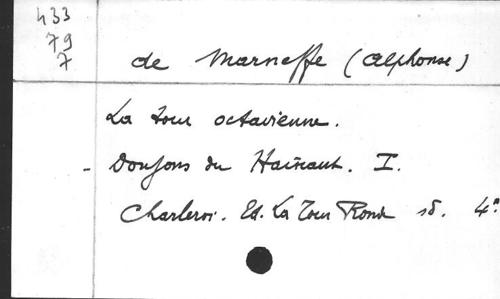 433
79
7
de Marneffe (Alphonse)
La Tour octavienne.
- Donjons du Hainaut. I.
Charleroi. Ed. La Tour Ronde sd. 4°